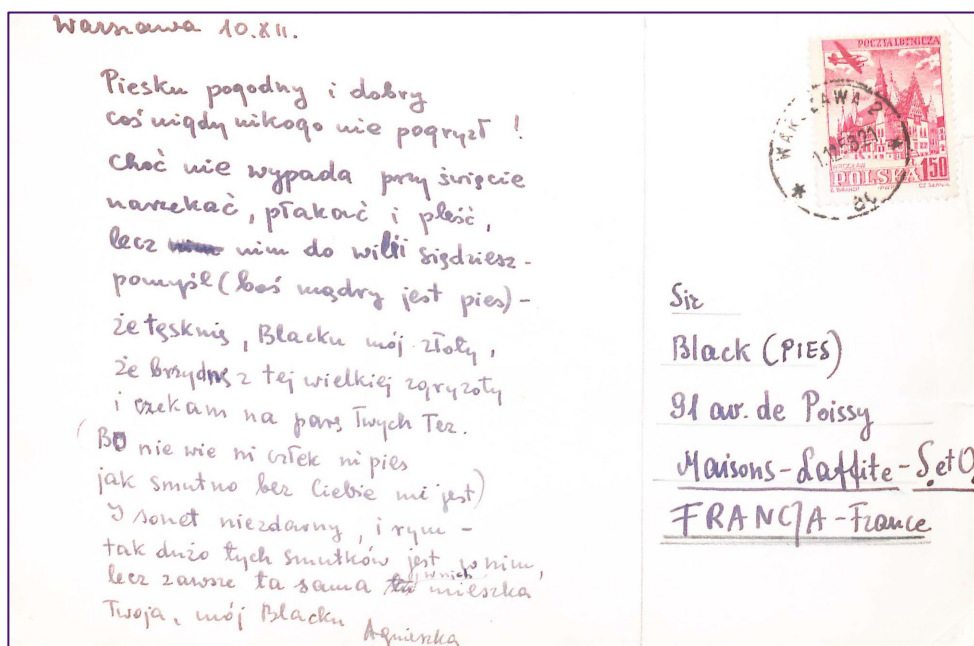 Warszawa 10.XII.
Piesku pogodny i dobry
coś nigdy nikogo nie pogryzł !
Choć nie wypada przy święcie
narzekać, płakać i pleść,
lecz nim do wilii siędziesz -
pomyśl (boś mądry jest pies) -
że tęsknię, Blacku mój złoty,
że brzydnę z tej wielkiej zgryzoty
i czekam na parę Twych łez.
(Bo nie wie ni człek ni pies
jak smutno bez Ciebie mi jest)
I sonet niezdarny, i rym -
tak dużo tych smutków jest w nim,
lecz zawsze ta sama w nich mieszka
Twoja, mój Blacku
Agnieszka
POCZTA LOTNICZA
WARSZAWA 2
WROCŁAW
POLSKA 150
Sir
Black (PIES)
91 av. de Poissy
Maisons-Laffite - S. et O.
FRANCJA - France